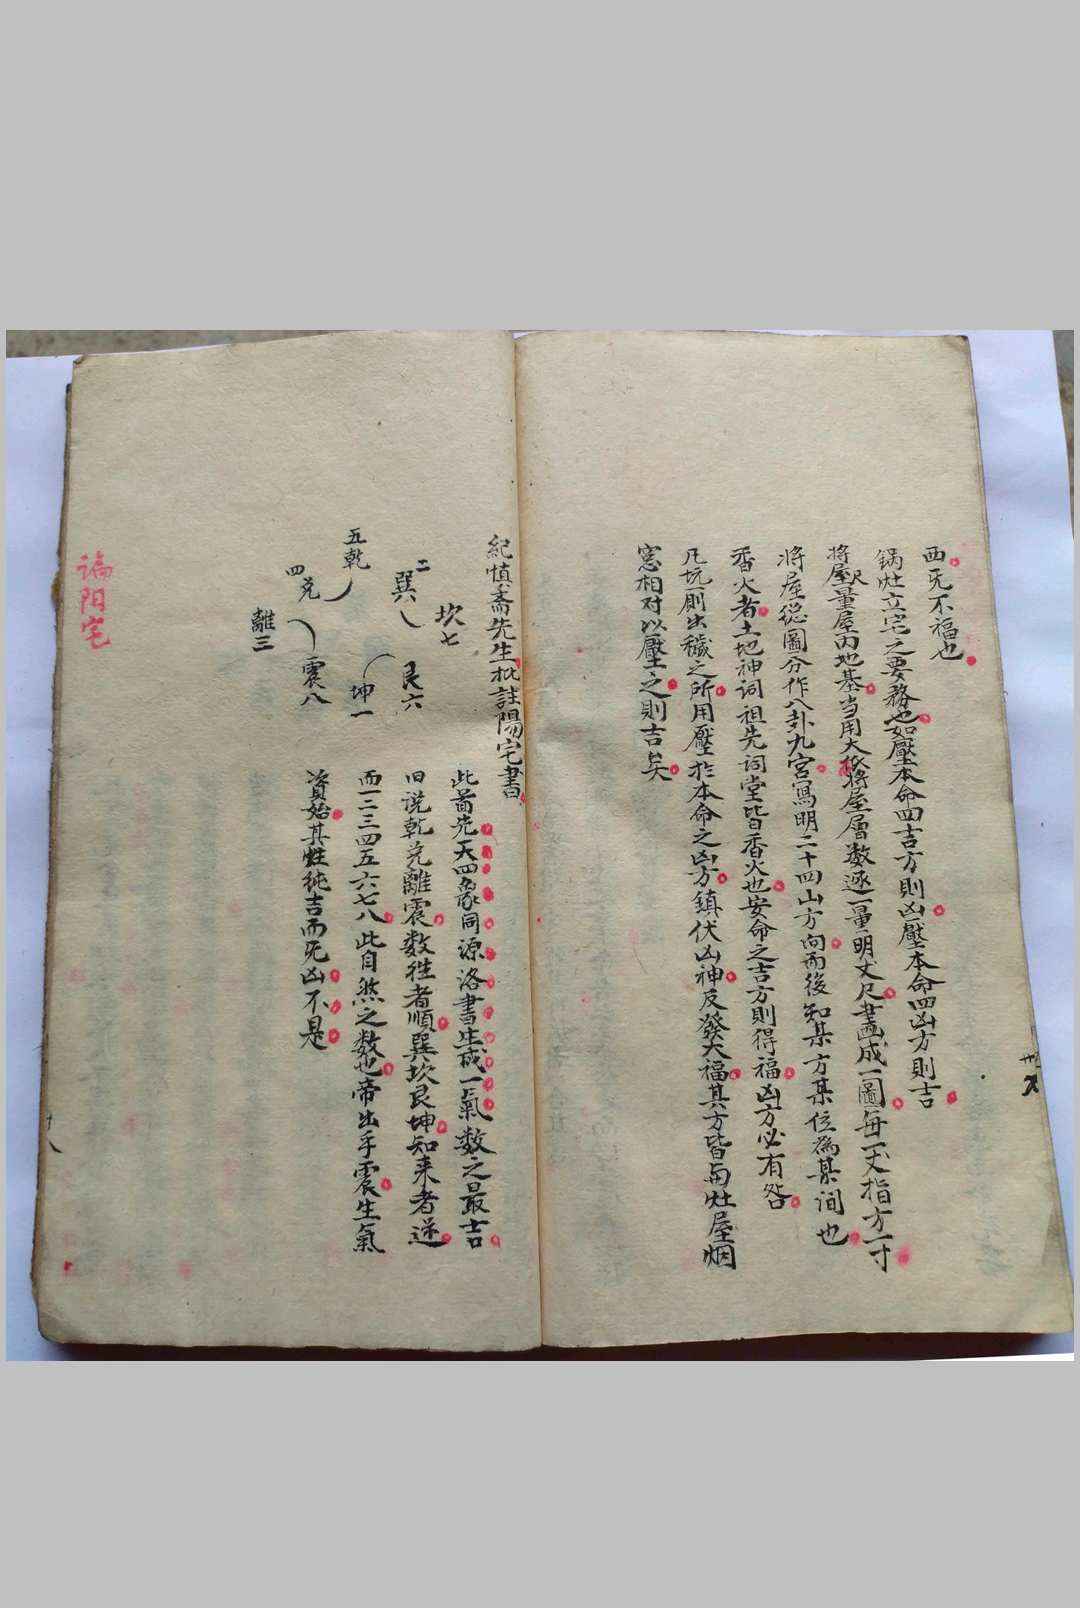 西旡不福也
鍋灶立宅之要務也如壓本命四吉方則凶壓本命四凶方則吉
將屋量屋内地基当用大將屋層数逐一量明丈尺畫成一圖每一丈指方一寸
將屋從圖分作八卦九宮寫明二十四山方向而後知某方某位為某间也
香火者土地神词祖先词堂皆香火也安命之吉方則得福凶方必有咎
凡坑厠出穢之所用壓於本命之凶方鎮伏凶神反發大福其方皆与灶屋烟
窓相对以壓之則吉矣
紀慎斋先生批註陽宅書
坎七
艮六
二巽
坤一
五乾
四兑
震八
離三
此啚先天四象同源洛書生成一氣数之最吉
旧说乾兑離震数徃者順巽坎艮坤知来者逆
而一二三四五六七八此自然之数也帝出乎震生氣
資始其性純吉而旡凶不是
阳宅
十八